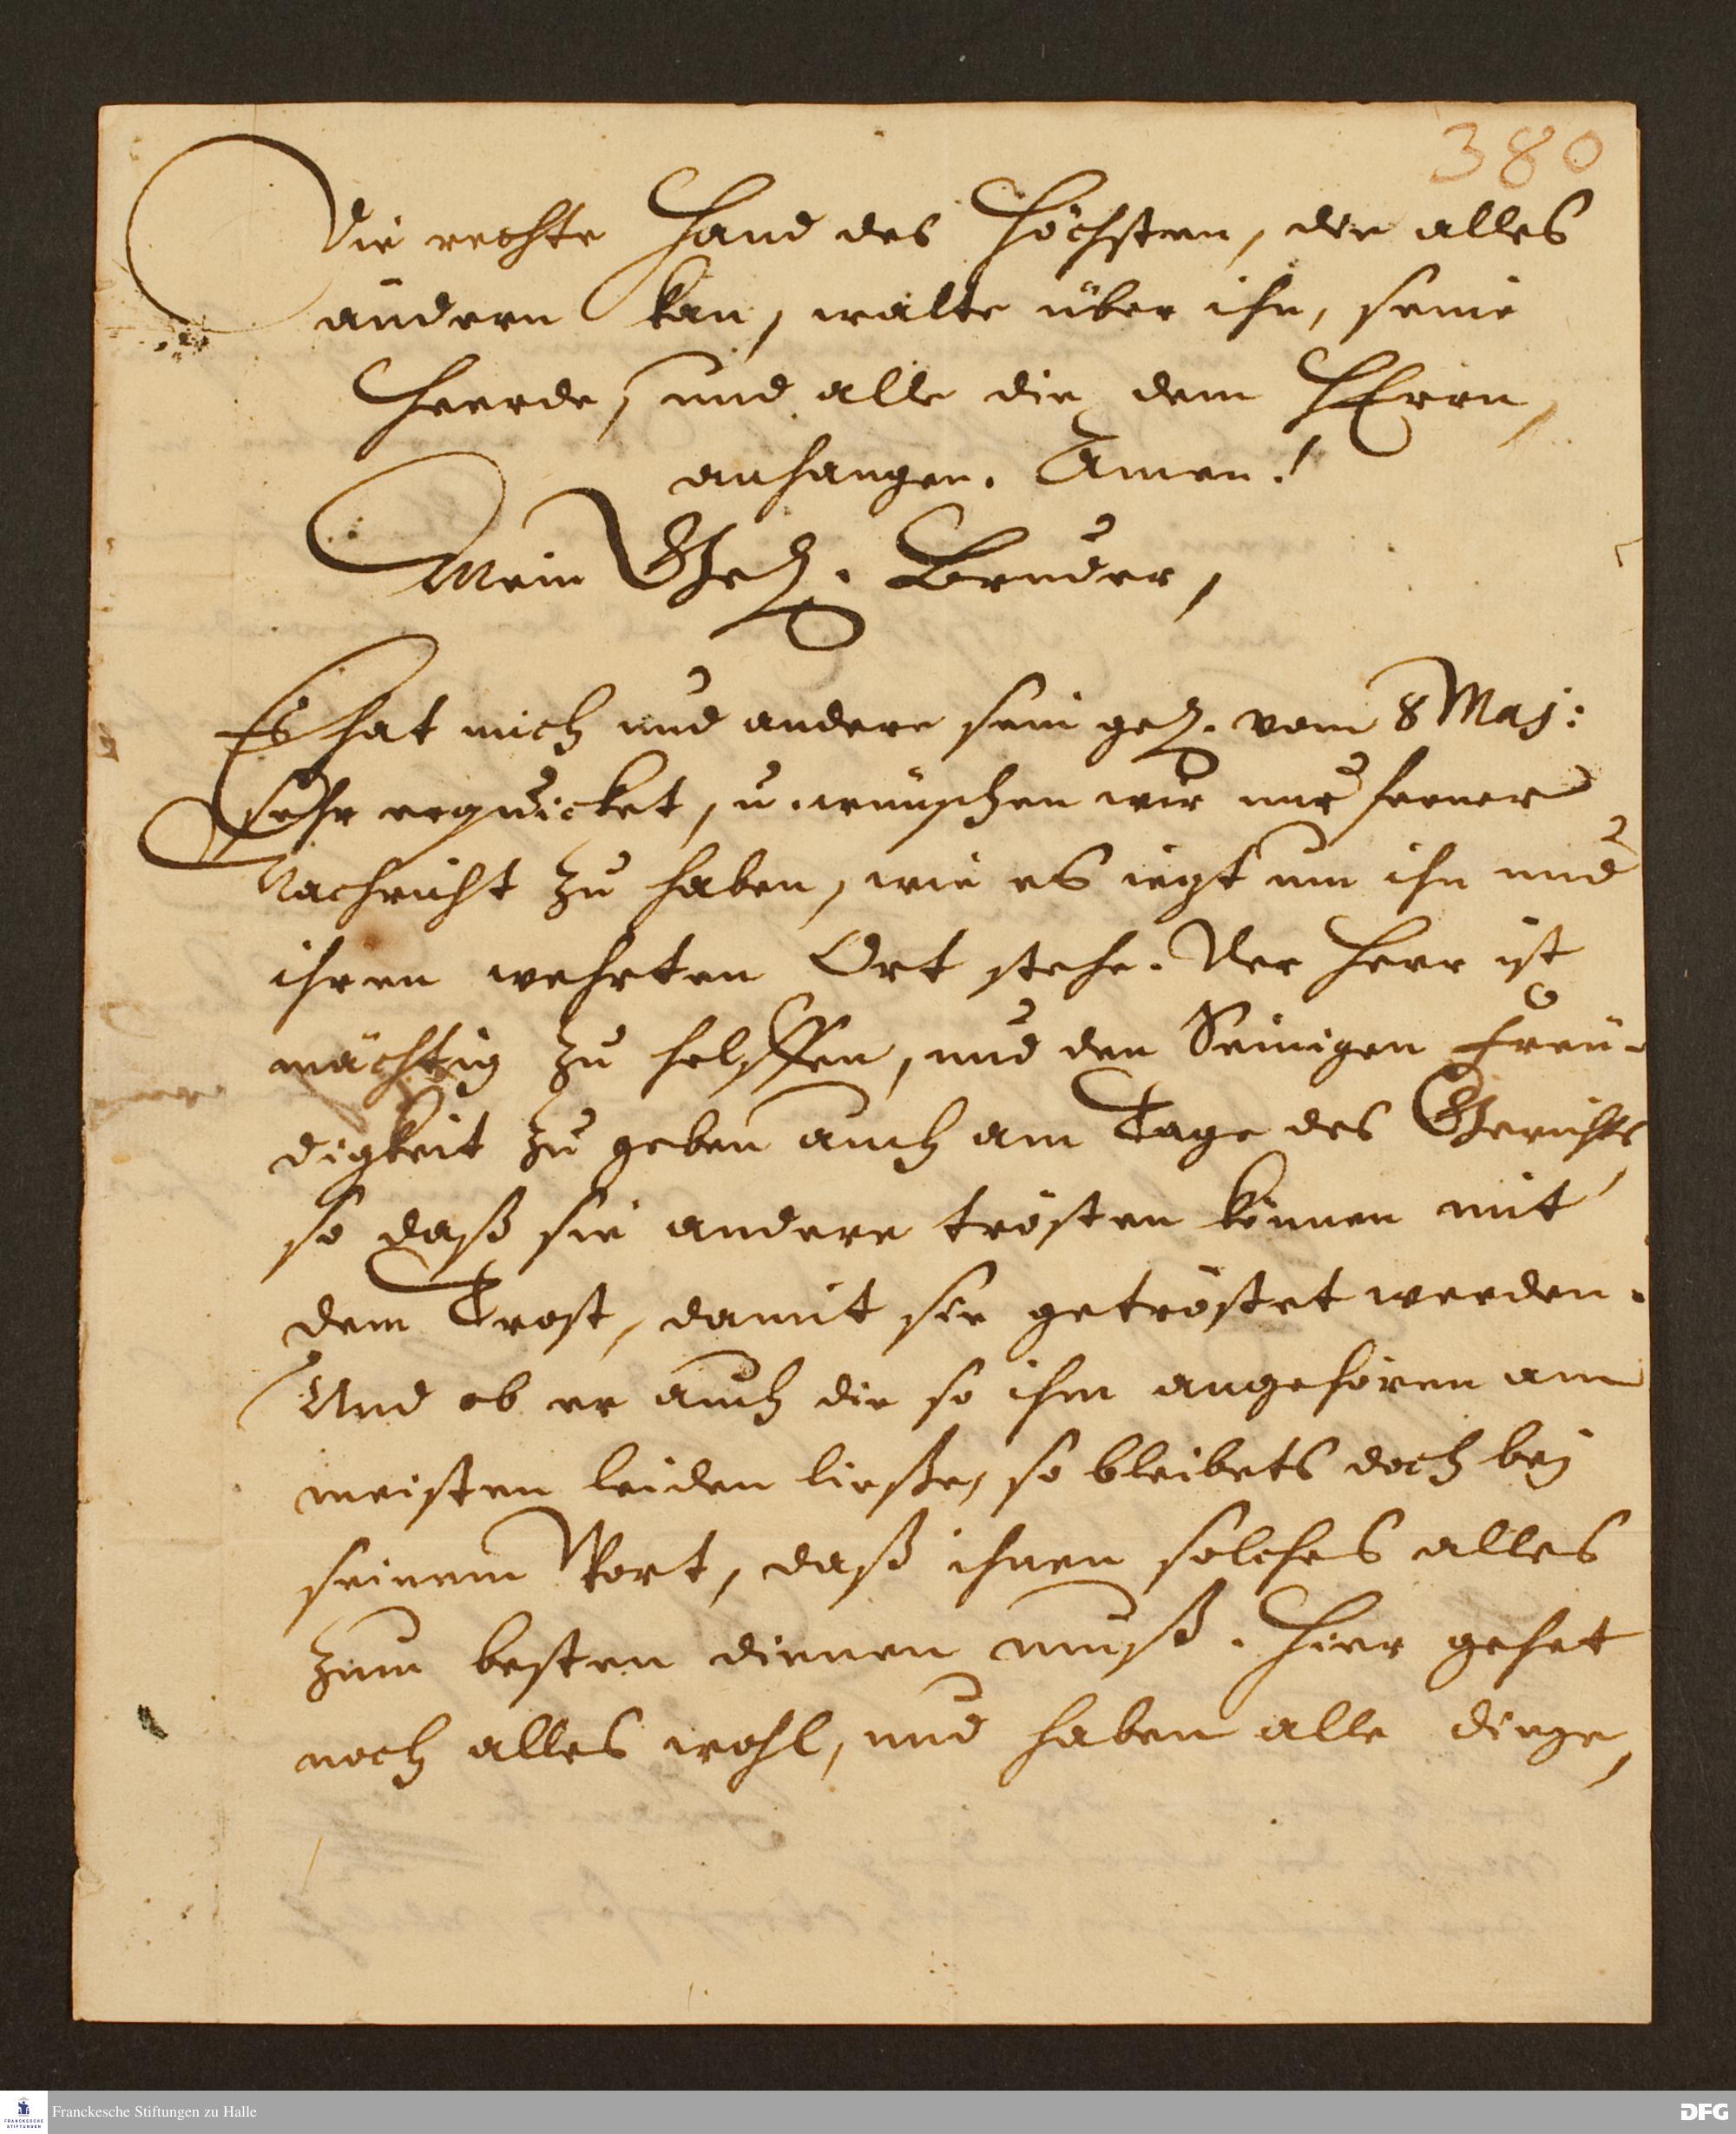 380
Die rechte Hand des Höchsten, der alles
ändern kan, walte über ihn, seine
Heerde, und alle die dem HErrn,
anhangen. Amen!
Mein Gel. Bruder,
Es hat mich und andere sein gel. vom 8 Maj:
sehr erquicket, u. wünschen wir nur ferner
Nachricht zu haben, wie es ietzt um ihn und
ihren wehrten Ort stehe. Der Herr ist
mächtig zu helffen, und den Seinigen Freü-
digkeit zu geben auch am Tage des Gerichts,
so daß sie andere trösten können mit
dem Trost, damit sie getröstet werden.
Und ob er auch die so ihm angehören am
meisten leiden ließe, so bleibets doch bey
seinem Wort, daß ihnen solches alles
zum besten dienen muß. Hier gehet
noch alles wohl, und haben alle diese,
Franckesche Stiftungen zu Halle
FRANCKESCHE
STIFTUNGEN
DFG